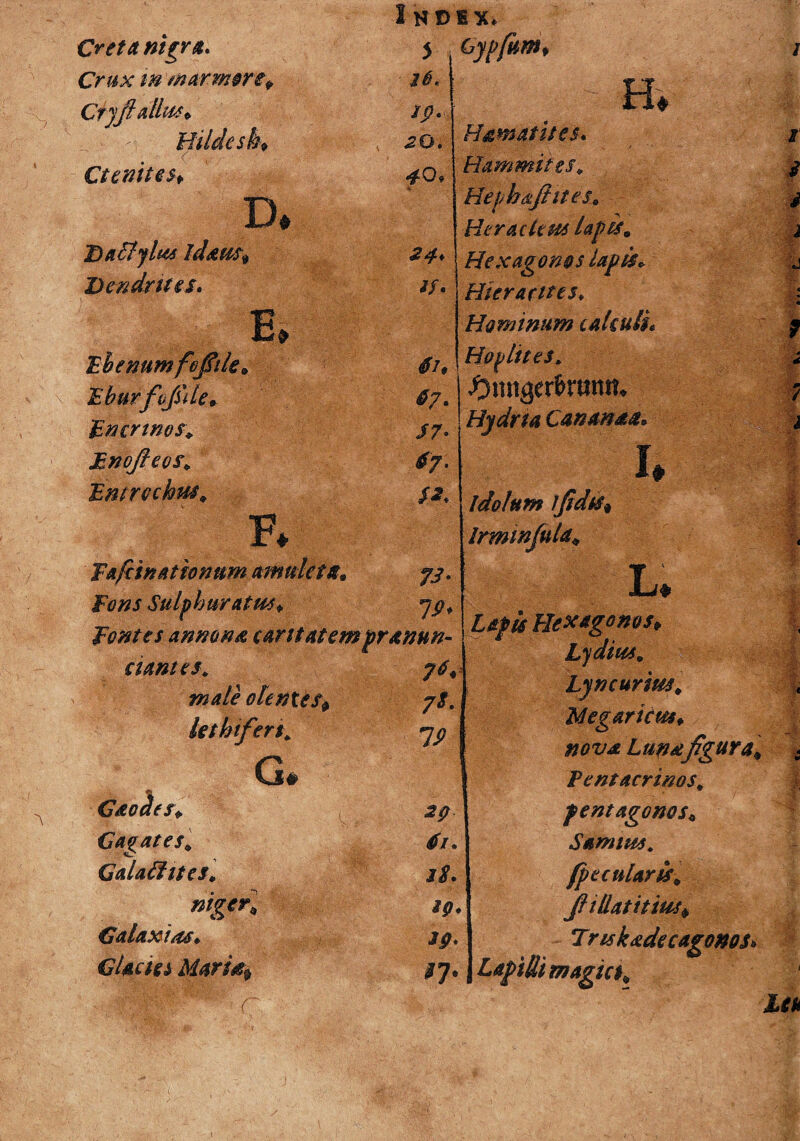 INDEX.
Creta nigra. 5
Crux in marmore. 16.
Cryſtallus. 19.
Hildesh. 20.
Ctenites. 40.
D.
Dactylus Idæus. 24.
Dendrites. 15.
E.
Ebenum foſſile. 61.
Ebur foſſile. 67.
Encrinos. 57.
Enoſteos. 67.
Entrochus. 52.
F.
Faſcinationum amuleta. 73.
Fons Sulphuratus. 79.
Fontes annonæ caritatem prænun-
ciantes. 76.
male olentes. 78.
lethiferi. 79
G.
Gæodes. 29
Gagates. 61.
Galactites. 18.
niger. 19.
Galaxias. 19.
Glacies Mariæ. 17.
Gypſum.
H.
Hæmatites.
Hammites.
Hephæſtites.
Heracleus lapis.
Hexagonos lapis.
Hieracites.
Hominum calculi.
Hoplites.
Hungerbrunn.
Hydria Cananæa.
I.
Idolum Iſidis.
Irminſula.
L.
Lapis Hexagonos.
Lydius.
Lyncurius.
Megaricus.
novæ Lunæ figura.
Pentacrinos.
pentagonos.
Samius.
ſpecularis.
ſtillatitius.
Triskædecagonos.
Lapilli magici.